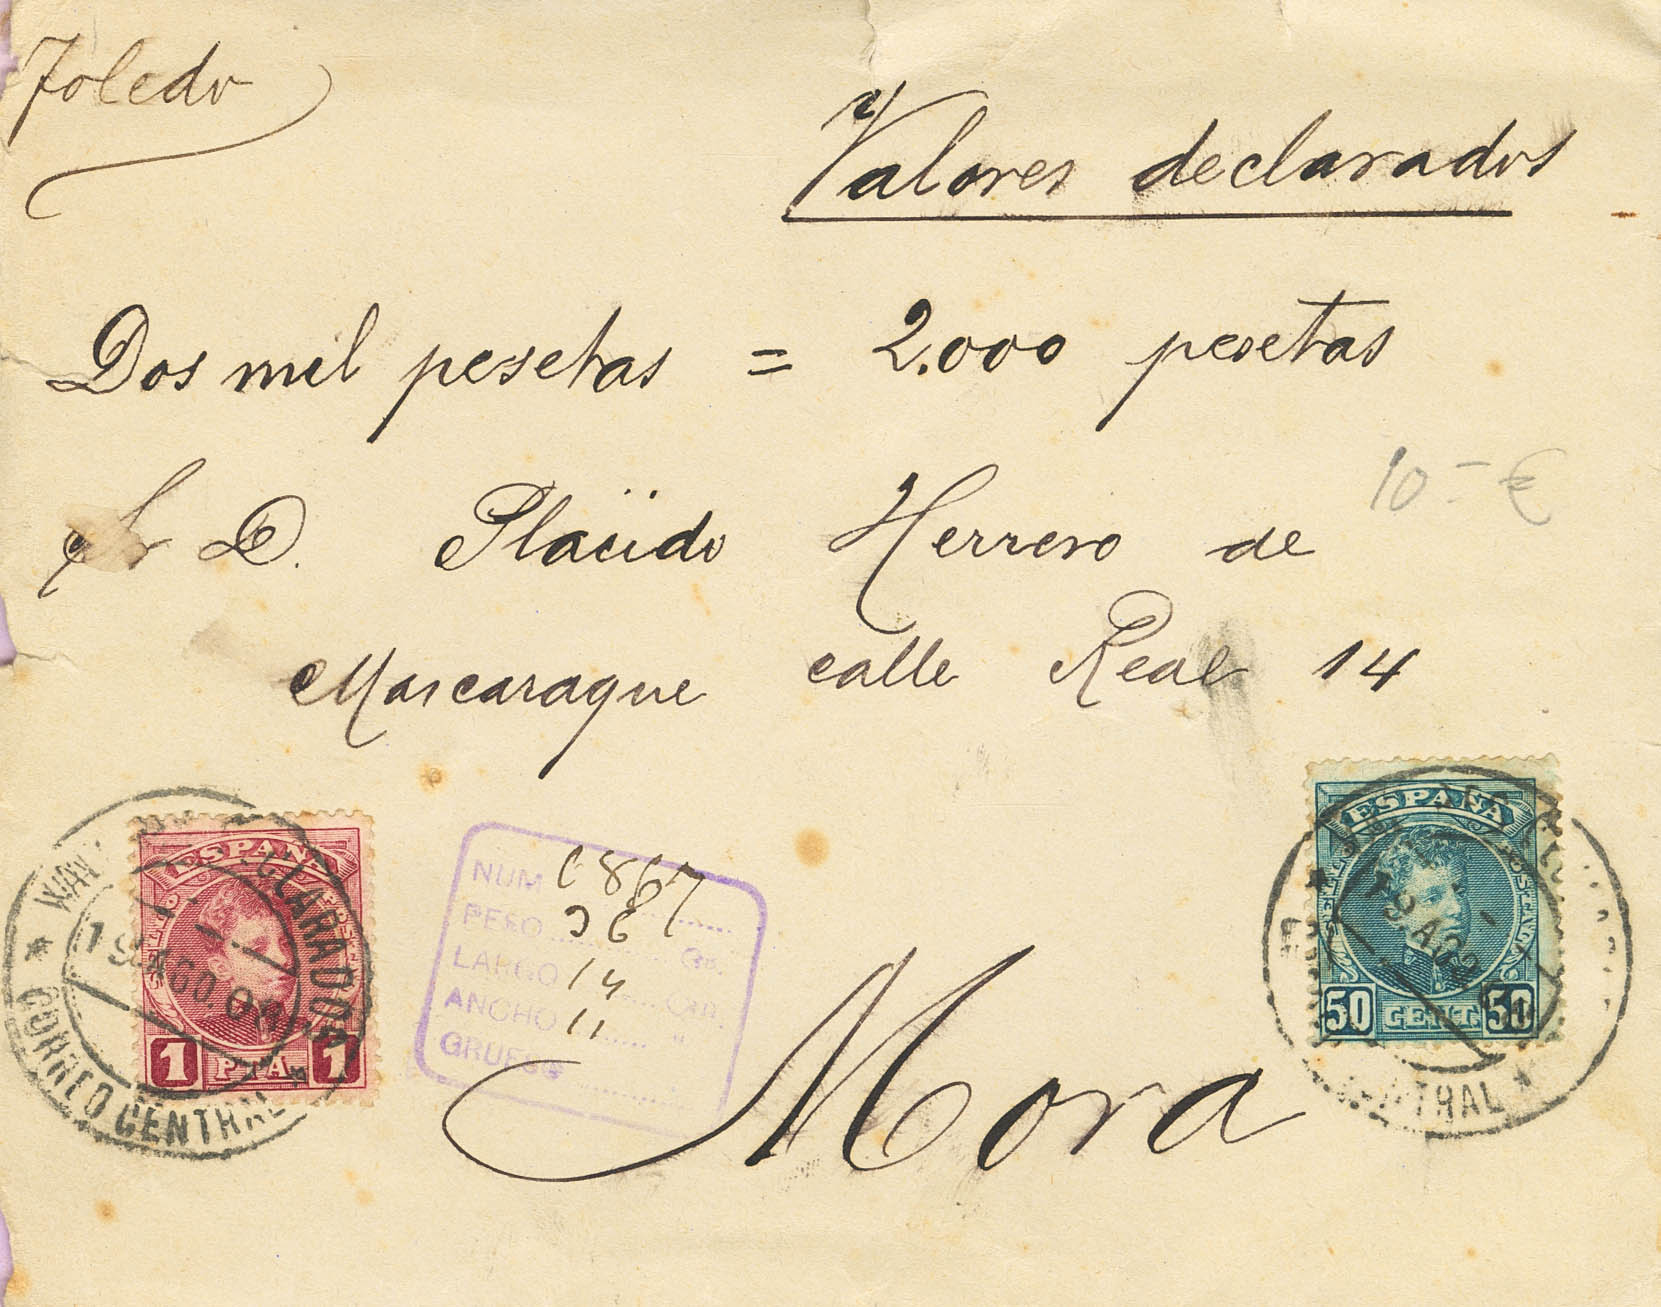 Toledo
Valores declarados
Dos mil pesetas = 2.000 pesetas
Sr D. Placido Herrero de
Mascaraque calle Real 14
10-€
ESPAÑA
1 PTA 1
DECLARADOS
19 AGO 09
CORREO CENTRAL
NUM
PESO 36 Gr.
LARGO 14 Cm.
ANCHO 11 "
GRUESO
Mora
ESPAÑA
50 CENT. 50
19 AGO
CENTRAL